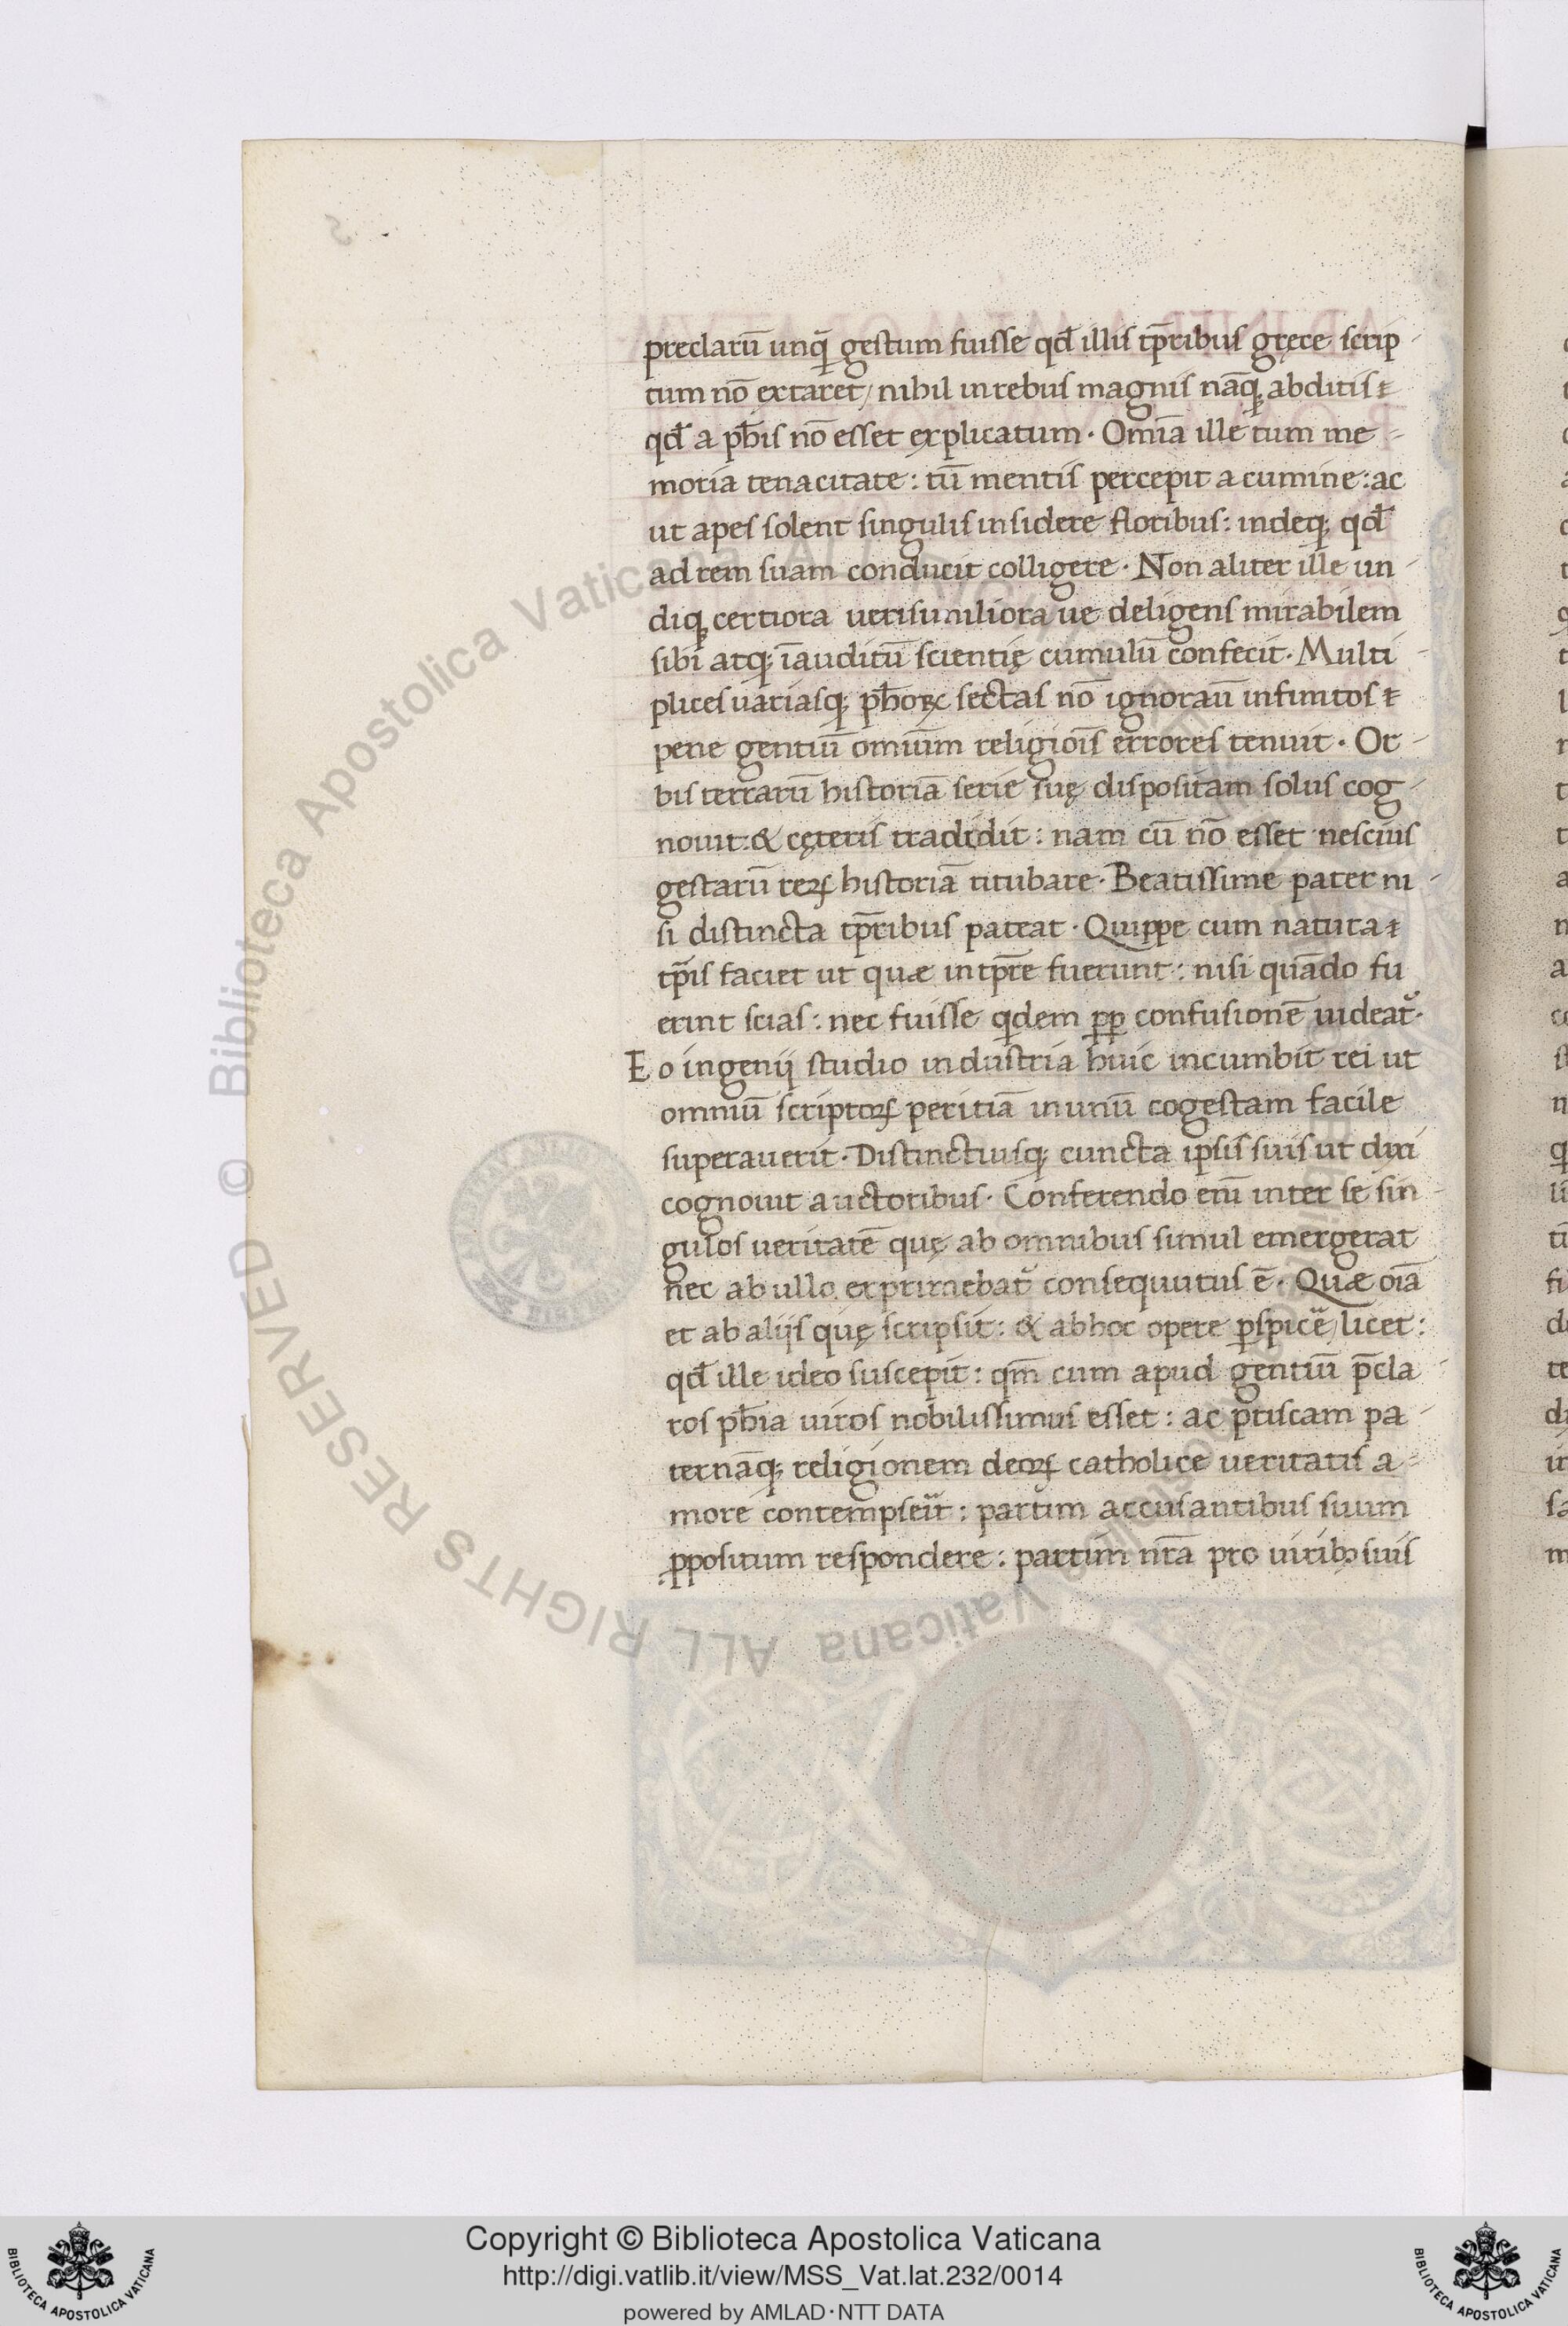 preclarū unq̄ gestum fuisse qd̄ illis tp̄ribus gręce scrip-
tum nō extaret / nihil in rebus magnis nāq; abditis ⁊
qd̄ a ph̄is nō esset explicatum · Omīa ille tum me-
moria tenacitate : tū mentis percepit acumine : ac
ut apes solent singulis insidere floribus : indeq; qd̄
ad rem suam conducit colligere · Non aliter ille un-
diq; certiora uerisimiliora ue deligens mirabilem
sibi atq; īauditū scientię cumulū confecit · Multi-
plices uariasq; ph̄oꝝ sectas nō ignorauī infinitos ⁊
pene gentiū omnium religiōis errores tenuit · Or-
bis terrarū historiā serie suę dispositam solus cog-
nouit : & cęteris tradidit : nam cū nō esset nescius
gestarū reꝝ historiā titubare · Beatissime pater ni-
si distincta tp̄ribus pateat · Quippe cum natura ⁊
tp̄is faciet ut quæ in tp̄re fuerunt : nisi quādo fu
erint scias : nec fuisse qͥdem ꝓp̱ confusionē uideat᷑ ·
Eo ingenij studio industria huic incumbit rei ut
omniū scriptoꝝ peritiā in unū cogestam facile
superauerit · Distinctiusq; cuncta ipsis suis ut dixi
cognouit auctoribus · Conferendo enī inter se sin-
gulos ueritatē quę ab omnibus simul emergerat
nec ab ullo exprimebat᷑ consequutus ē · Quæ oīa
et ab alijs quę scripsit : & ab hoc opere ꝑspicē / licet :
qd̄ ille ideo suscepit : qm̄ cum apud gentiū p̄cla-
ros ph̄ia uiros nobilissimus esset : ac priscam pa-
ternāq; religionem deoꝝ catholice ueritatis a-
more contempseūt : partim accusantibus suum
ꝓpositum respondere : partim nr̄a pro uirib; suis
© Biblioteca Apostolica Vaticana ALL RIGHTS RESERVED
Copyright © Biblioteca Apostolica Vaticana
http://digi.vatlib.it/view/MSS_Vat.lat.232/0014
powered by AMLAD·NTT DATA
BIBLIOTECA APOSTOLICA VATICANA
BIBLIOTECA APOSTOLICA VATICANA